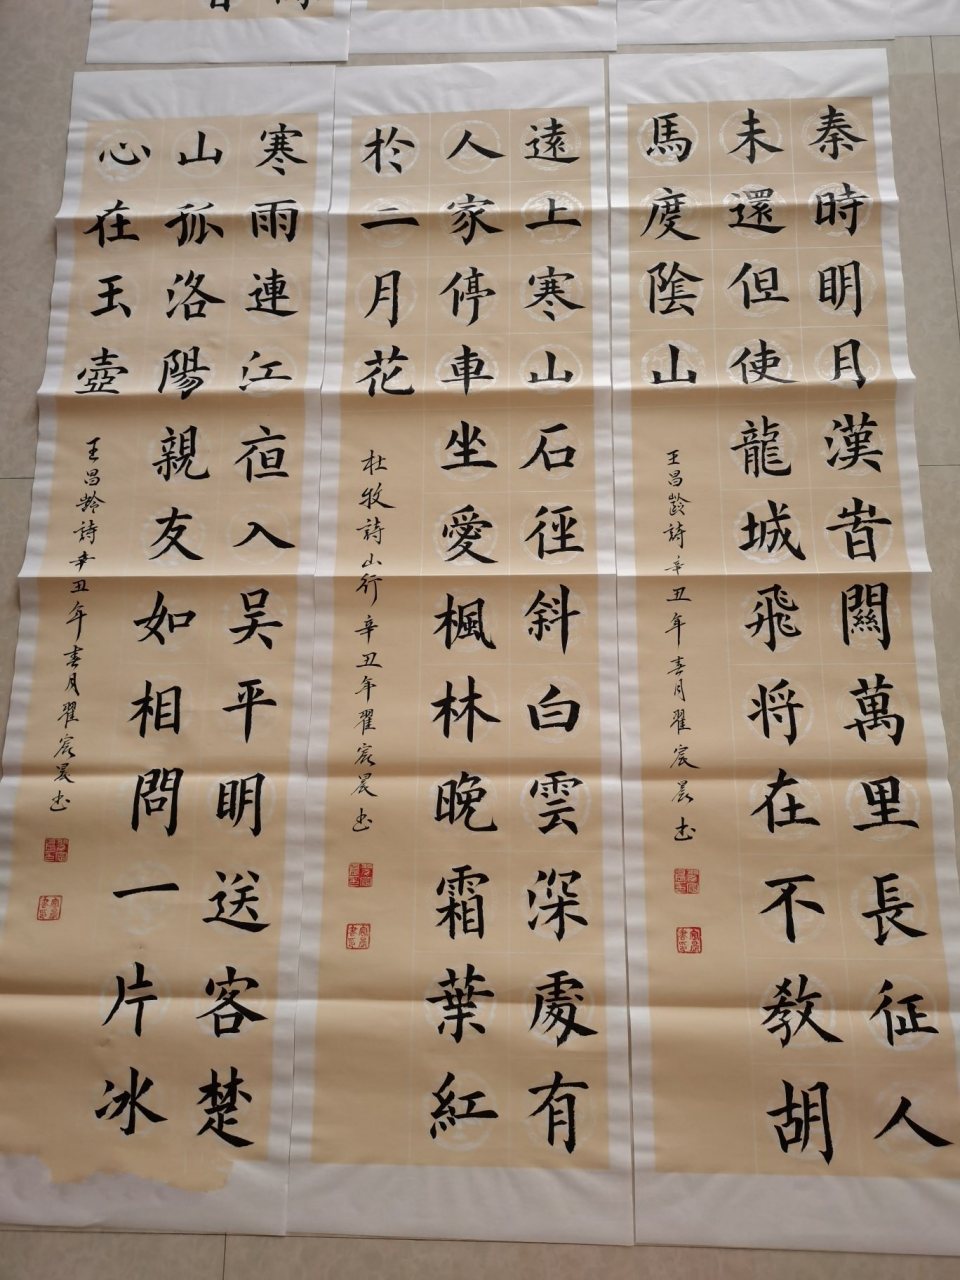 秦時明月漢旹關萬里長征人
未還但使龍城飛将在不教胡
馬度陰山
王昌齡詩辛丑年春月翟宸晨书
遠上寒山石徑斜白雲深處有
人家停車坐愛楓林晚霜葉紅
於二月花
杜牧詩山行辛丑年翟宸晨书
寒雨連江亱入吴平明送客楚
山孤洛陽親友如相問一片冰
心在玉壺
王昌齡詩辛丑年春月翟宸晨书